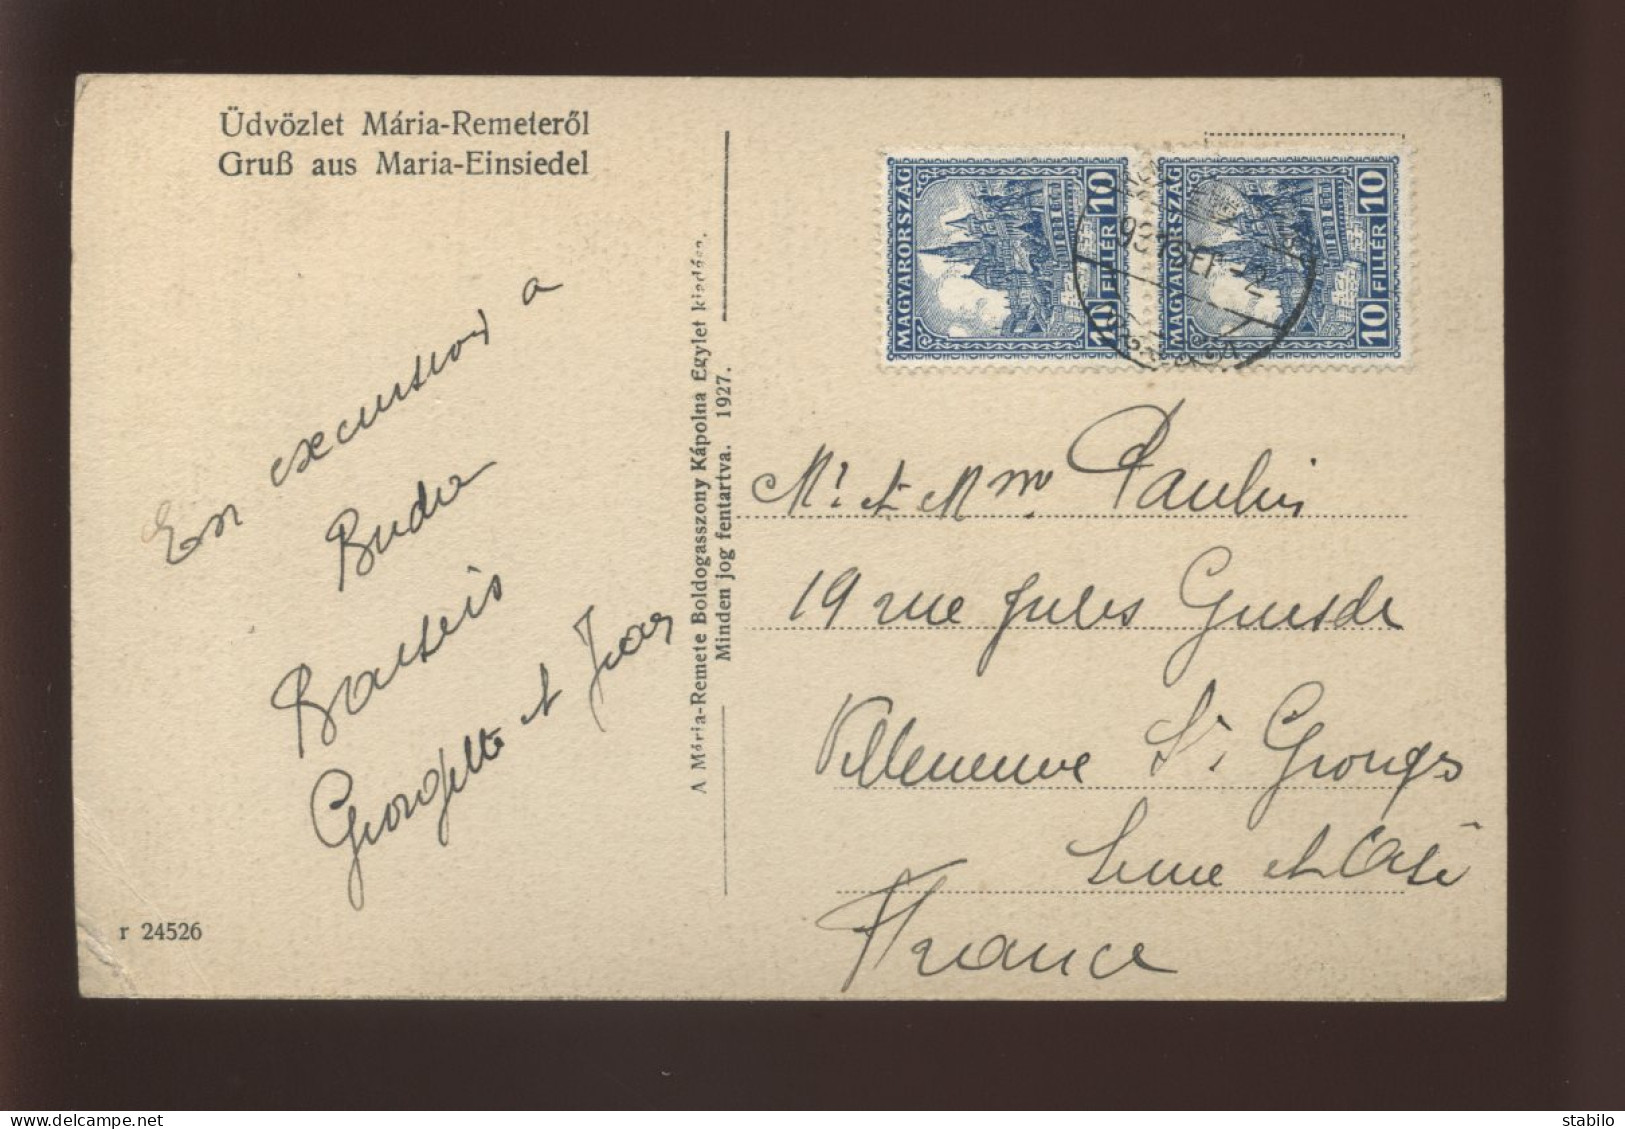 Üdvözlet Mária-Remeteről
Gruß aus Maria-Einsiedel
En excursion a
Buda
Baiseis
Georgette et Jean
r 24526
A Mária-Remete Boldogasszony Kápolna Egylet kiadása.
Minden jog fentartva. 1927.
MAGYARORSZÁG
10 FILLÉR 10
MAGYARORSZÁG
10 FILLÉR 10
931 SEP -2
Mr et Mme Paulin
19 rue Jules Guesde
Villeneuve St Georges
Seine et Oise
France
stabilo